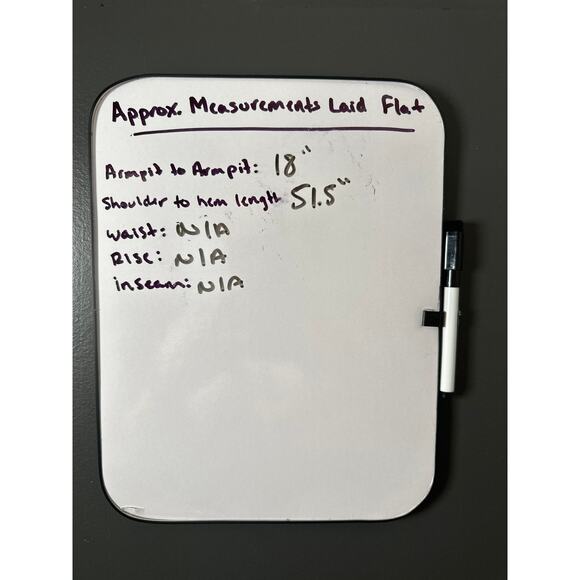 Approx. Measurements Laid Flat
Armpit to Armpit: 18"
Shoulder to hem length 51.5"
waist: N/A
Rise: N/A
inseam: N/A